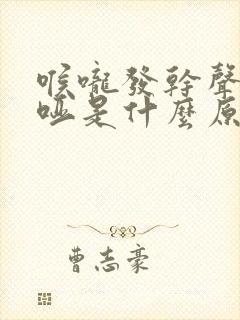 喉嚨發幹聲
啞是什麼原
曹志豪